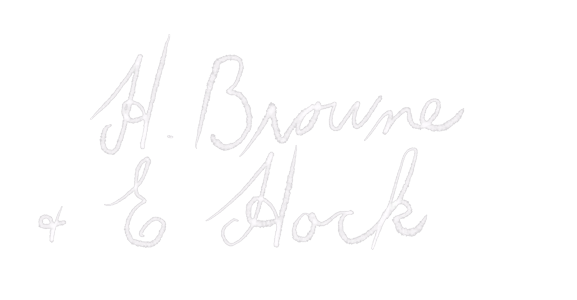 H. Browne
& E Hock